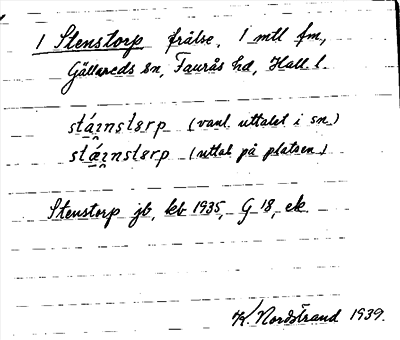 1 Stenstorp frälse, 1 mtl fm,
Gällareds sn, Faurås hd, Hall. l.
(vanl. uttalet i sn.)
(uttal på platsen)
Stenstorp jb, kb 1935, G 18, ek.
K. Nordstrand 1939.